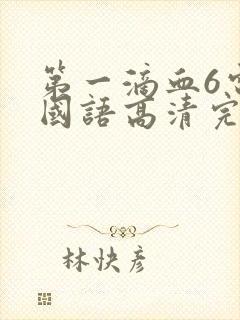 第一滴血6
國語高清完
林快彥